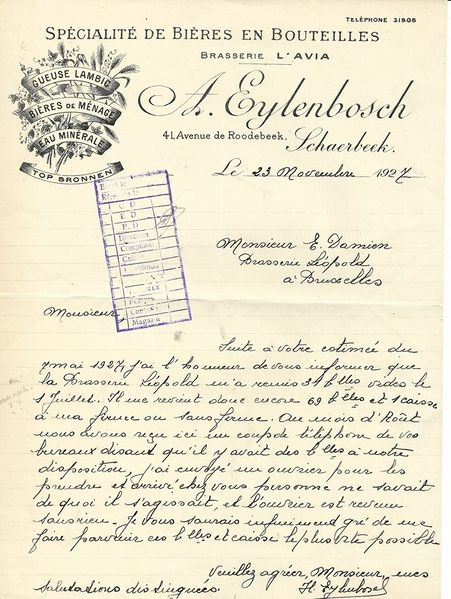 TÉLÉPHONE 31908
SPÉCIALITÉ DE BIÈRES EN BOUTEILLES
BRASSERIE L'AVIA
A. Eylenbosch
41, Avenue de Roodebeek.
Schaerbeek.
GUEUSE LAMBIC
BIÈRES DE MÉNAGE
EAU MINÉRALE
TOP BRONNEN
Le 23 Novembre 1927
C D
E D
P. D
Direction
Comptable
Magasin
Monsieur E. Damien
Brasserie Léopold
à Bruxelles
Monsieur,
Suite à votre estimée du
7 mai 1927, j'ai l'honneur de vous informer que
la Brasserie Léopold m'a remis 31 blles vides le
1 Juillet. Il me revient donc encore 69 blles et 1 caisse
à ma firme ou sans firme. Au mois d'Août
nous avons reçu ici un coup de téléphone de vos
bureaux disant qu'il y avait des blles à notre
disposition, j'ai envoyé un ouvrier pour les
prendre et arrivé chez vous personne ne savait
de quoi il s'agissait, et l'ouvrier est revenu
sans rien. Je vous saurais infiniment gré de me
faire parvenir ces blles et caisse le plus vite possible
Veuillez agréer, Monsieur, mes
salutations distinguées.
H. Eylenbosch